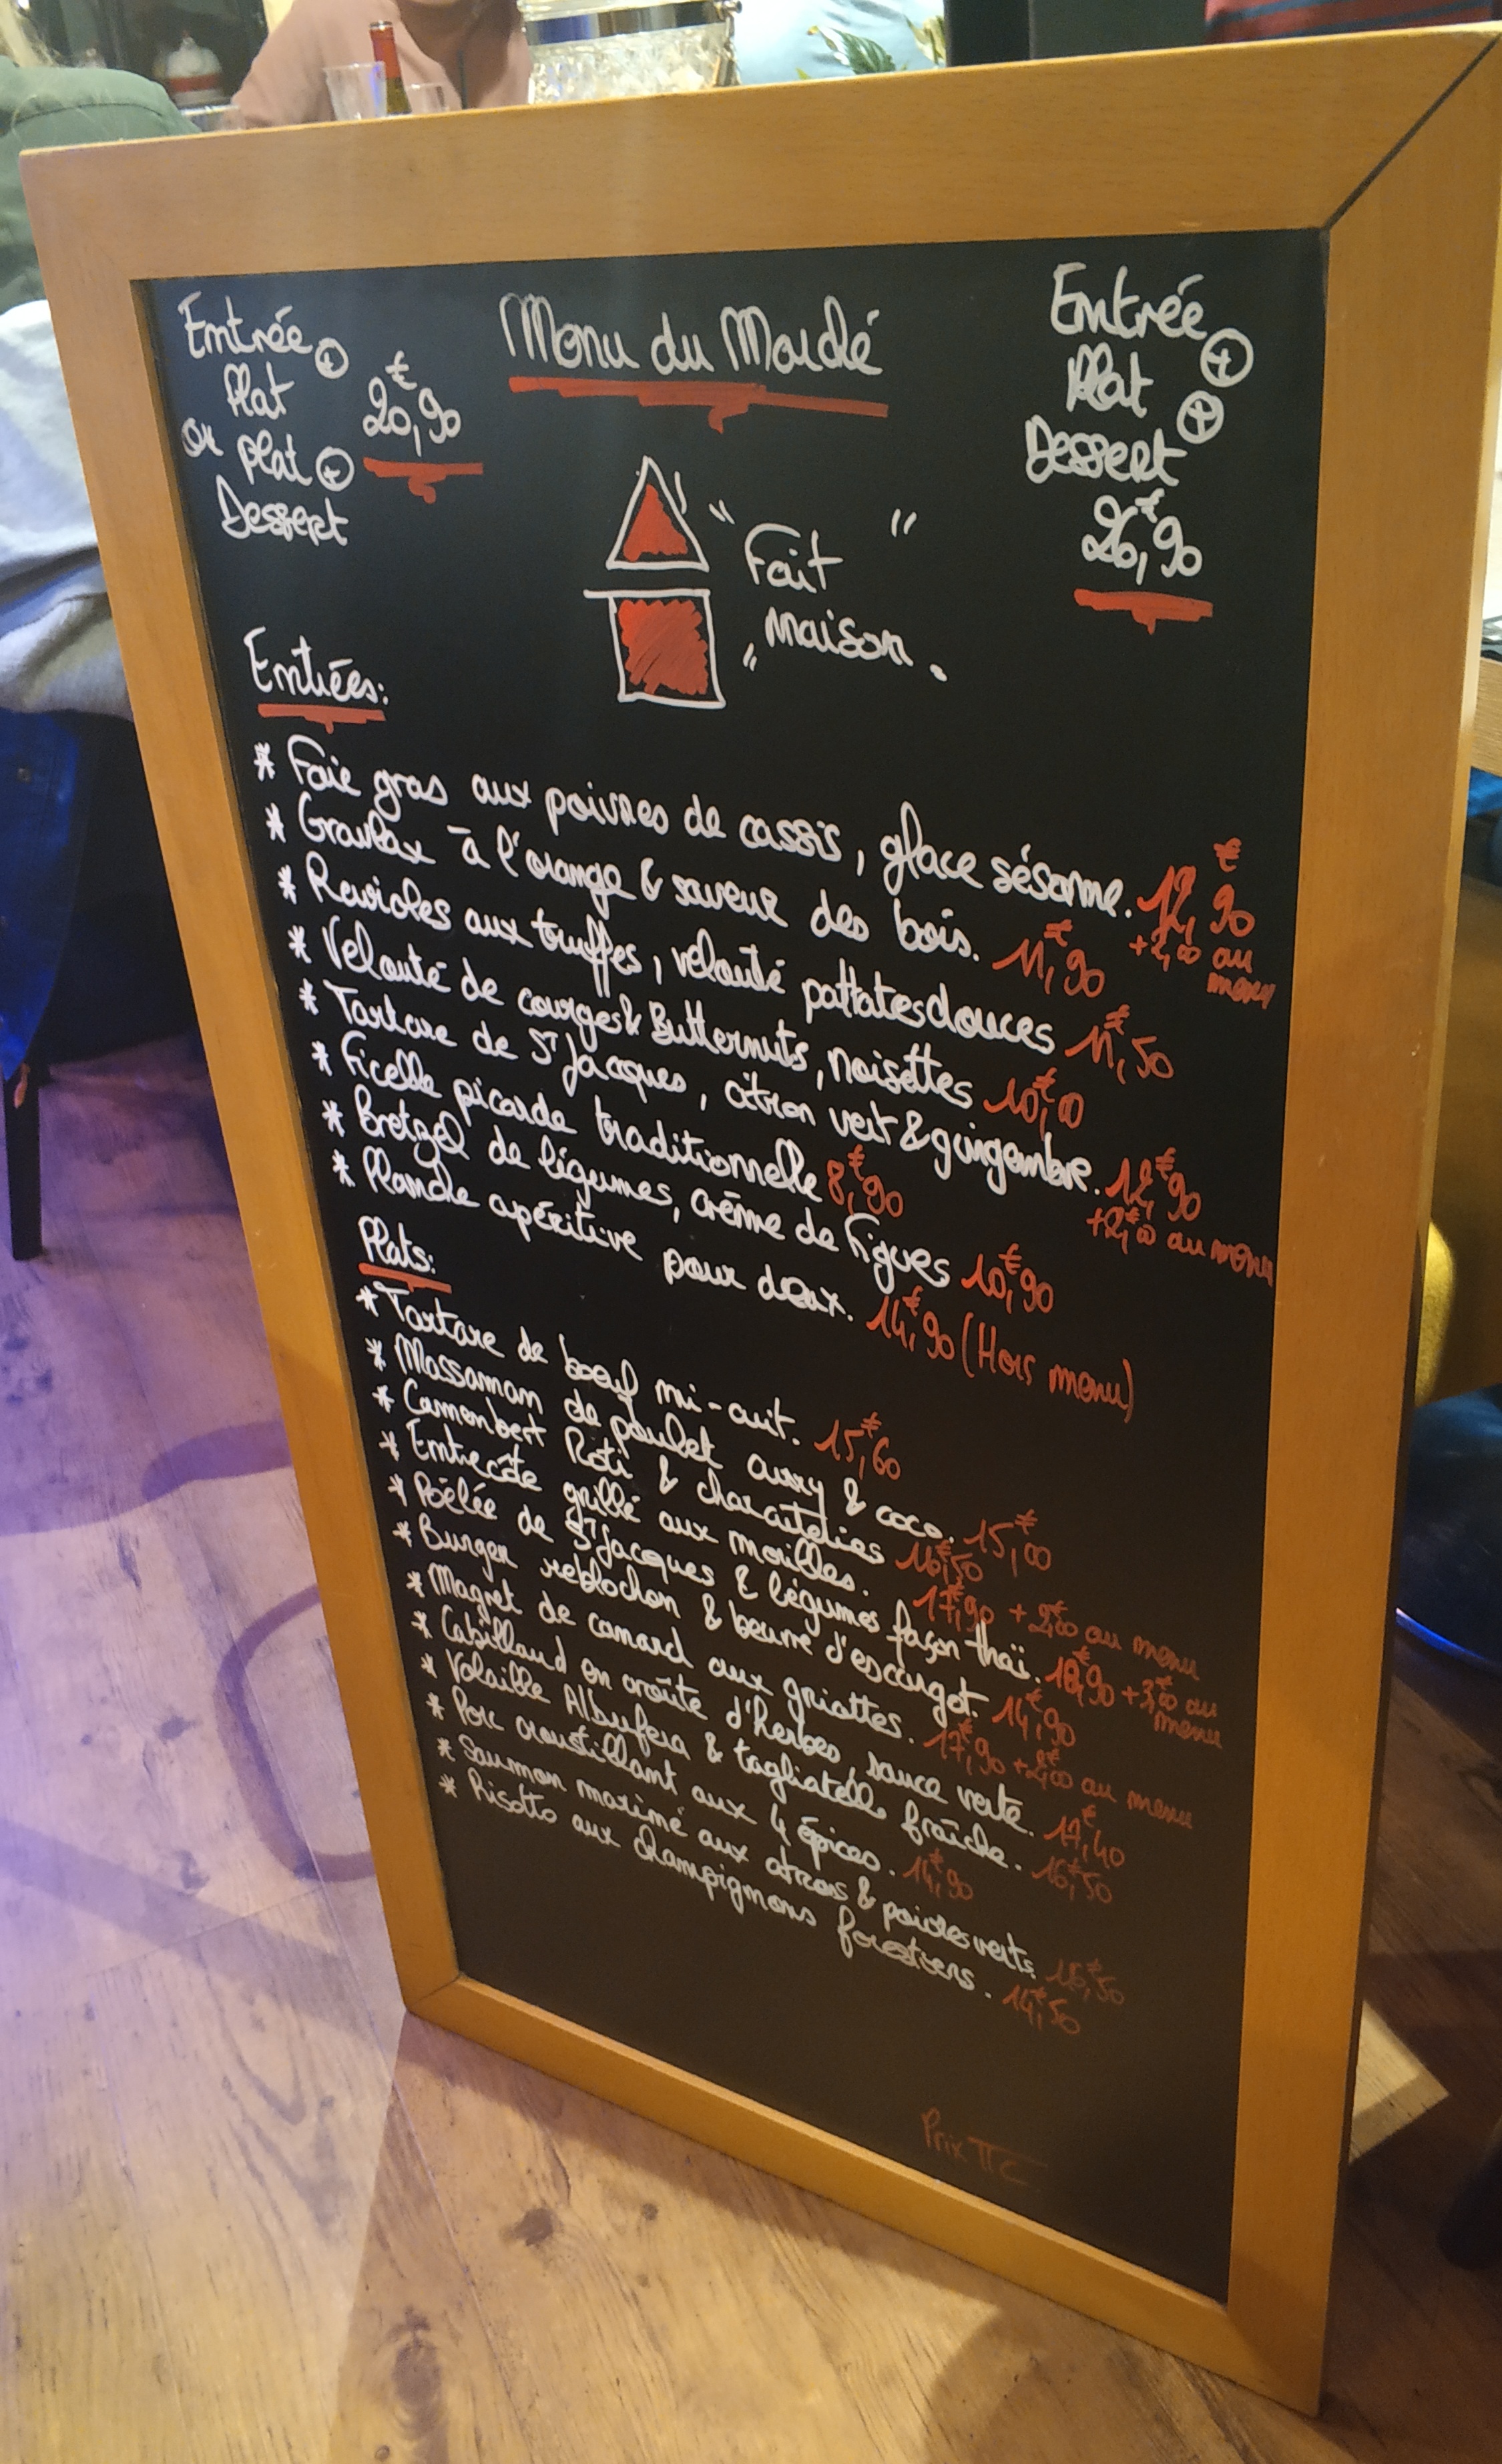 Entrée +
Plat
ou plat +
Dessert
20,90€
Menu du Marché
Entrée +
Plat +
Dessert
26,90€
"Fait"
"maison.
Entrées:
* Foie gras aux poivres de cassis, glace sésame. 12,90€
+2,00 au
menu
* Gravlax à l'orange & saveur des bois. 11,90€
* Ravioles aux truffes, velouté pattates douces 11,50€
* Velouté de courges & Butternuts, noisettes 10,00€
* Tartare de St Jacques, citron vert & gingembre. 12,90€
+2,00€ au menu
* Ficelle picarde traditionnelle 8,90€
* Bretzel de légumes, crème de figues 10,90€
* Planche apéritive pour deux. 14,90€ (Hors menu)
Plats:
* Tartare de boeuf mi-cuit. 15,60€
* Massaman de poulet curry & coco. 15,00€
* Camembert Roti & charcuteries 16,50€
* Entrecôte grillé aux morilles. 17,90€ + 2,00€ au menu
* Poêlée de St Jacques & légumes façon thaï. 18,90€ + 3,00€ au
menu
* Burger reblochon & beurre d'escargot. 14,90€
* Magret de canard aux griottes. 17,90€ + 2,00€ au menu
* Cabillaud en croûte d'herbes, sauce verte. 17,40€
* Volaille Albufera & tagliatelle fraîche. 16,50€
* Porc croustillant aux 4 épices. 14,90€
* Saumon mariné aux citrons & poivres verts. 16,50€
* Risotto aux champignons forestiers. 14,50€
Prix TTC